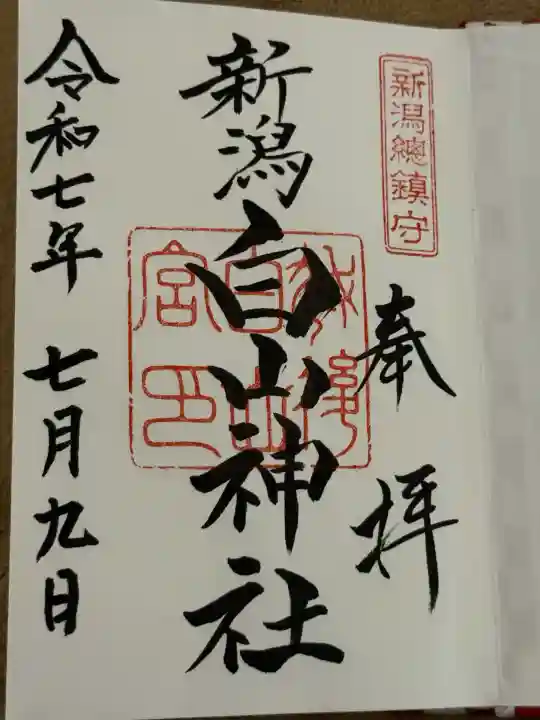 新潟總鎮守
奉拝
新潟白山神社
令和七年 七月九日